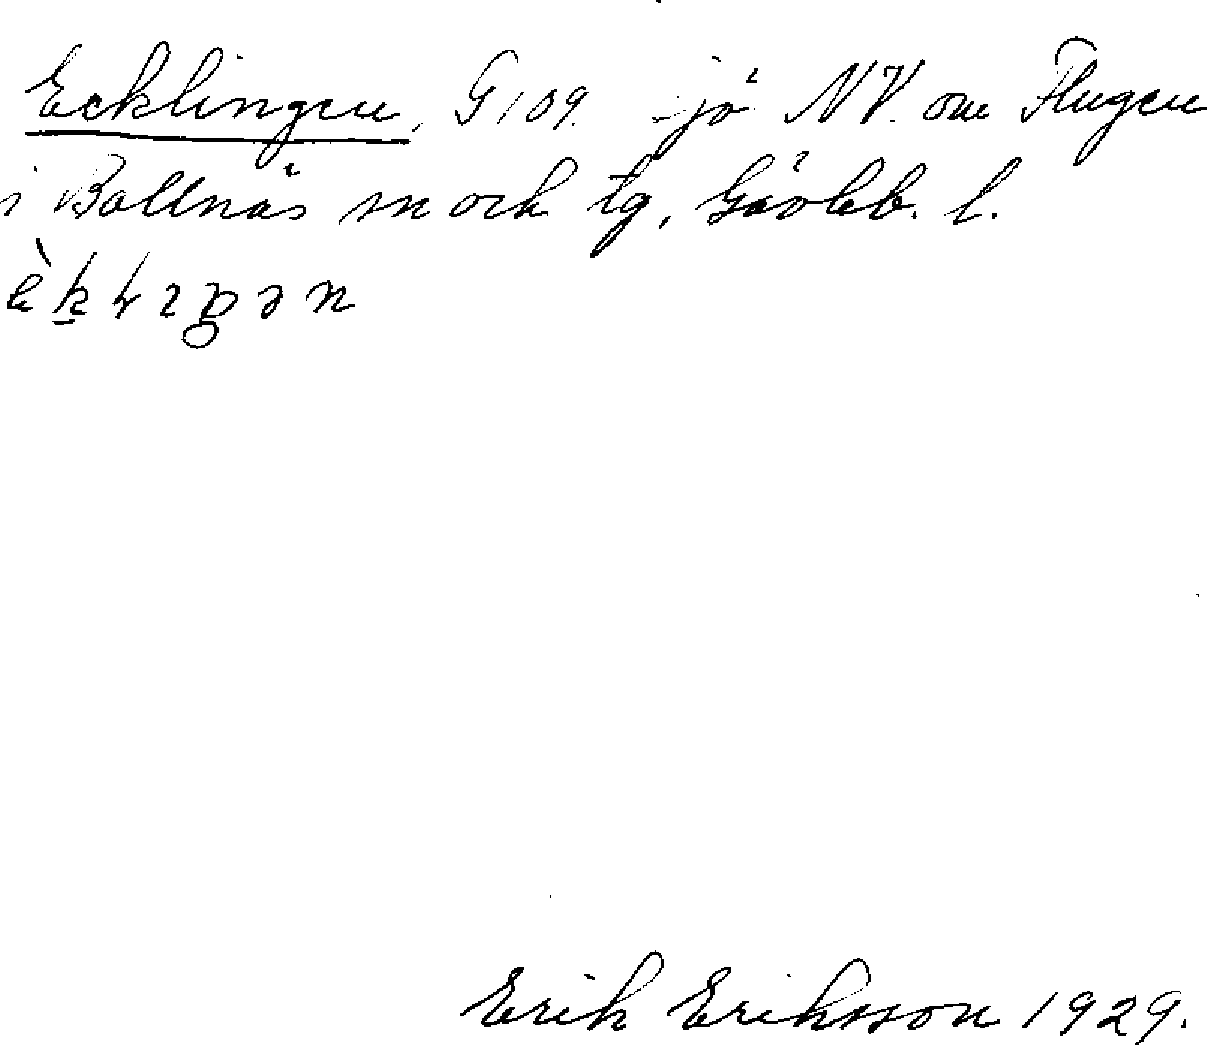 Ecklingen, G 109. sjö NV. om Flugen
i Bollnäs sn och tg, Gävleb. l.
Erik Eriksson 1929.